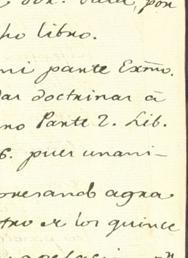 por
ho libro.
mi parte Exmo.
das doctrinas â
no Parte 2. Lib.
6. pues unani-
presando agra
tro e los quince